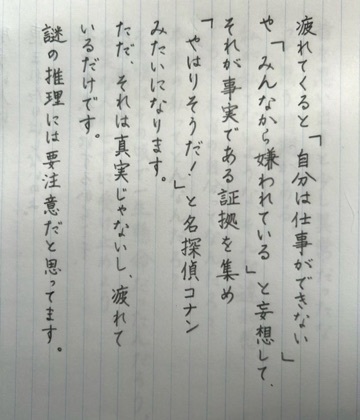 疲れてくると「自分は仕事ができない」
や「みんなから嫌われている」と妄想して、
それが事実である証拠を集め
「やはりそうだ！」と名探偵コナン
みたいになります。
ただ、それは真実じゃないし、疲れて
いるだけです。
謎の推理には要注意だと思ってます。